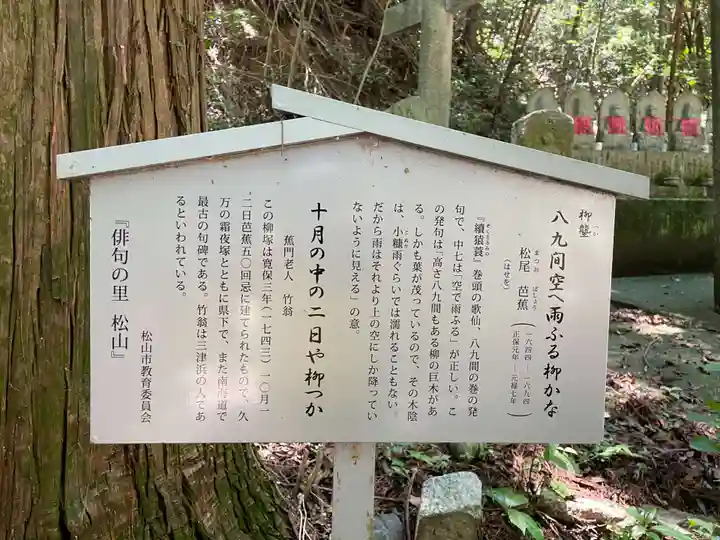 柳塾
八九間空へ雨ふる柳かな
松尾 芭蕉
まつお ばしょう
(はせを)
(一六四四―一六九四
正保元年―元禄七年)
『續猿蓑』巻頭の歌仙、八九間の巻の発
句で、中七は「空で雨ふる」が正しい。こ
の発句は「高さ八九間もある柳の巨木があ
る。しかも葉が茂っているので、その木陰
は、小糠雨ぐらいでは濡れることもない。
だから雨はそれより上の空にしか降ってい
ないように見える」の意。
十月の中の二日や柳つか
蕉門老人 竹翁
この柳塚は寛保三年(一七四三)一〇月一
二日芭蕉五〇回忌に建てられたもので、久
万の霜夜塚とともに県下で、また南海道で
最古の句碑である。竹翁は三津浜の人であ
るといわれている。
松山市教育委員会
『俳句の里 松山』